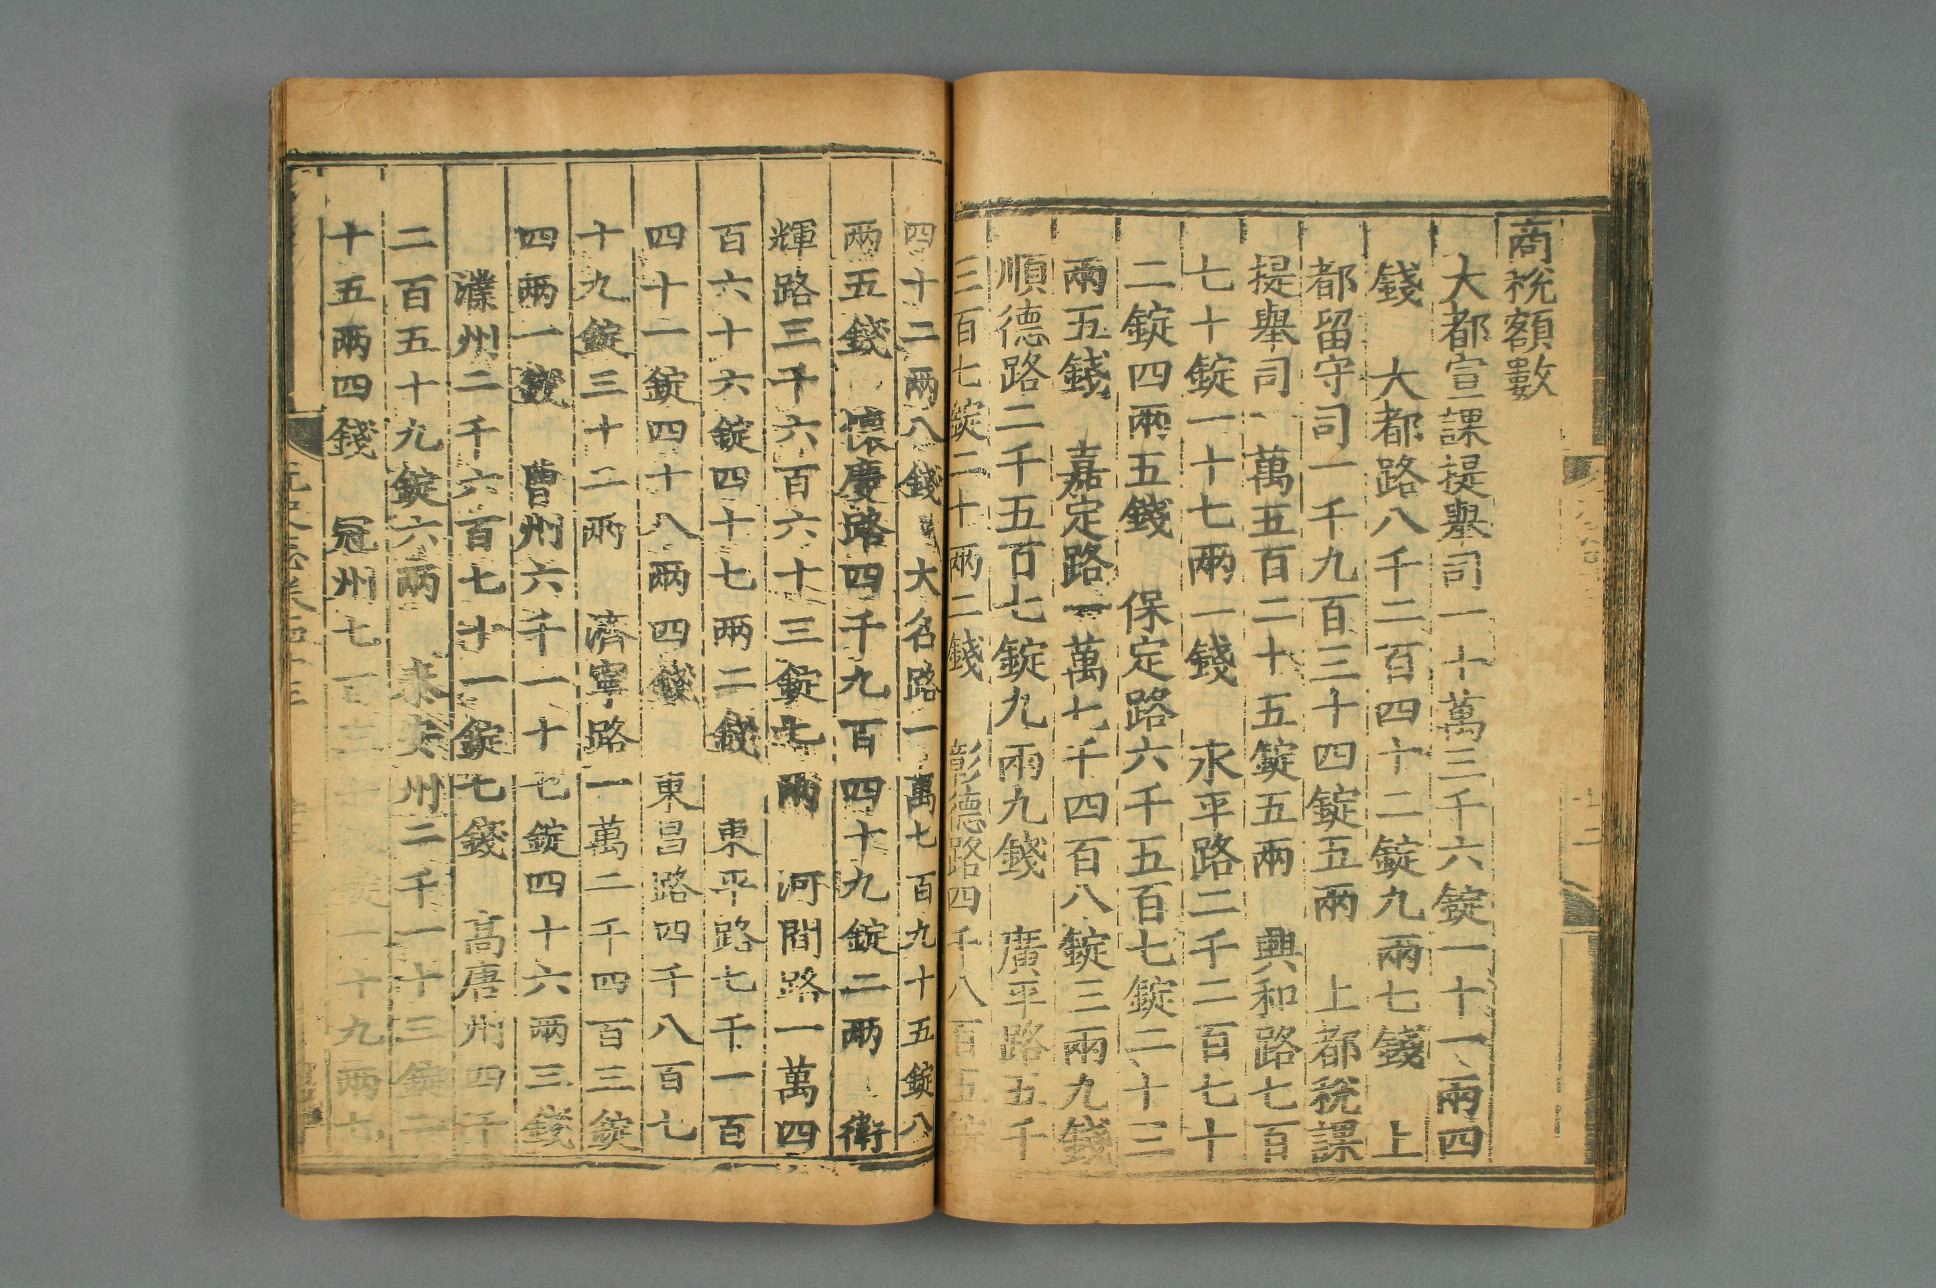 商稅額數
大都宣課提舉司一十萬三千六錠一十一兩四
錢 大都路八千二百四十二錠九兩七錢 上
都留守司一千九百三十四錠五兩 上都稅課
提舉司一萬五百二十五錠五兩 興和路七百
七十錠一十七兩一錢 永平路二千二百七十
二錠四兩五錢 保定路六千五百七錠二十三
兩五錢 嘉定路一萬七千四百八錠三兩九錢
順德路二千五百七錠九兩九錢 廣平路五千
三百七錠二十兩二錢 彰德路四千八百五錠
四十二兩八錢 大名路一萬七百九十五錠八
兩五錢 懷慶路四千九百四十九錠二兩 衛
輝路三千六百六十三錠七兩 河間路一萬四
百六十六錠四十七兩二錢 東平路七千一百
四十一錠四十八兩四錢 東昌路四千八百七
十九錠三十二兩 濟寧路一萬二千四百三錠
四兩一錢 曹州六千一十七錠四十六兩三錢
濮州二千六百七十一錠七錢 高唐州四千
二百五十九錠六兩 泰安州二千一十三錠二
十五兩四錢 冠州七百三十八錠一十九兩七
元史志卷四十三